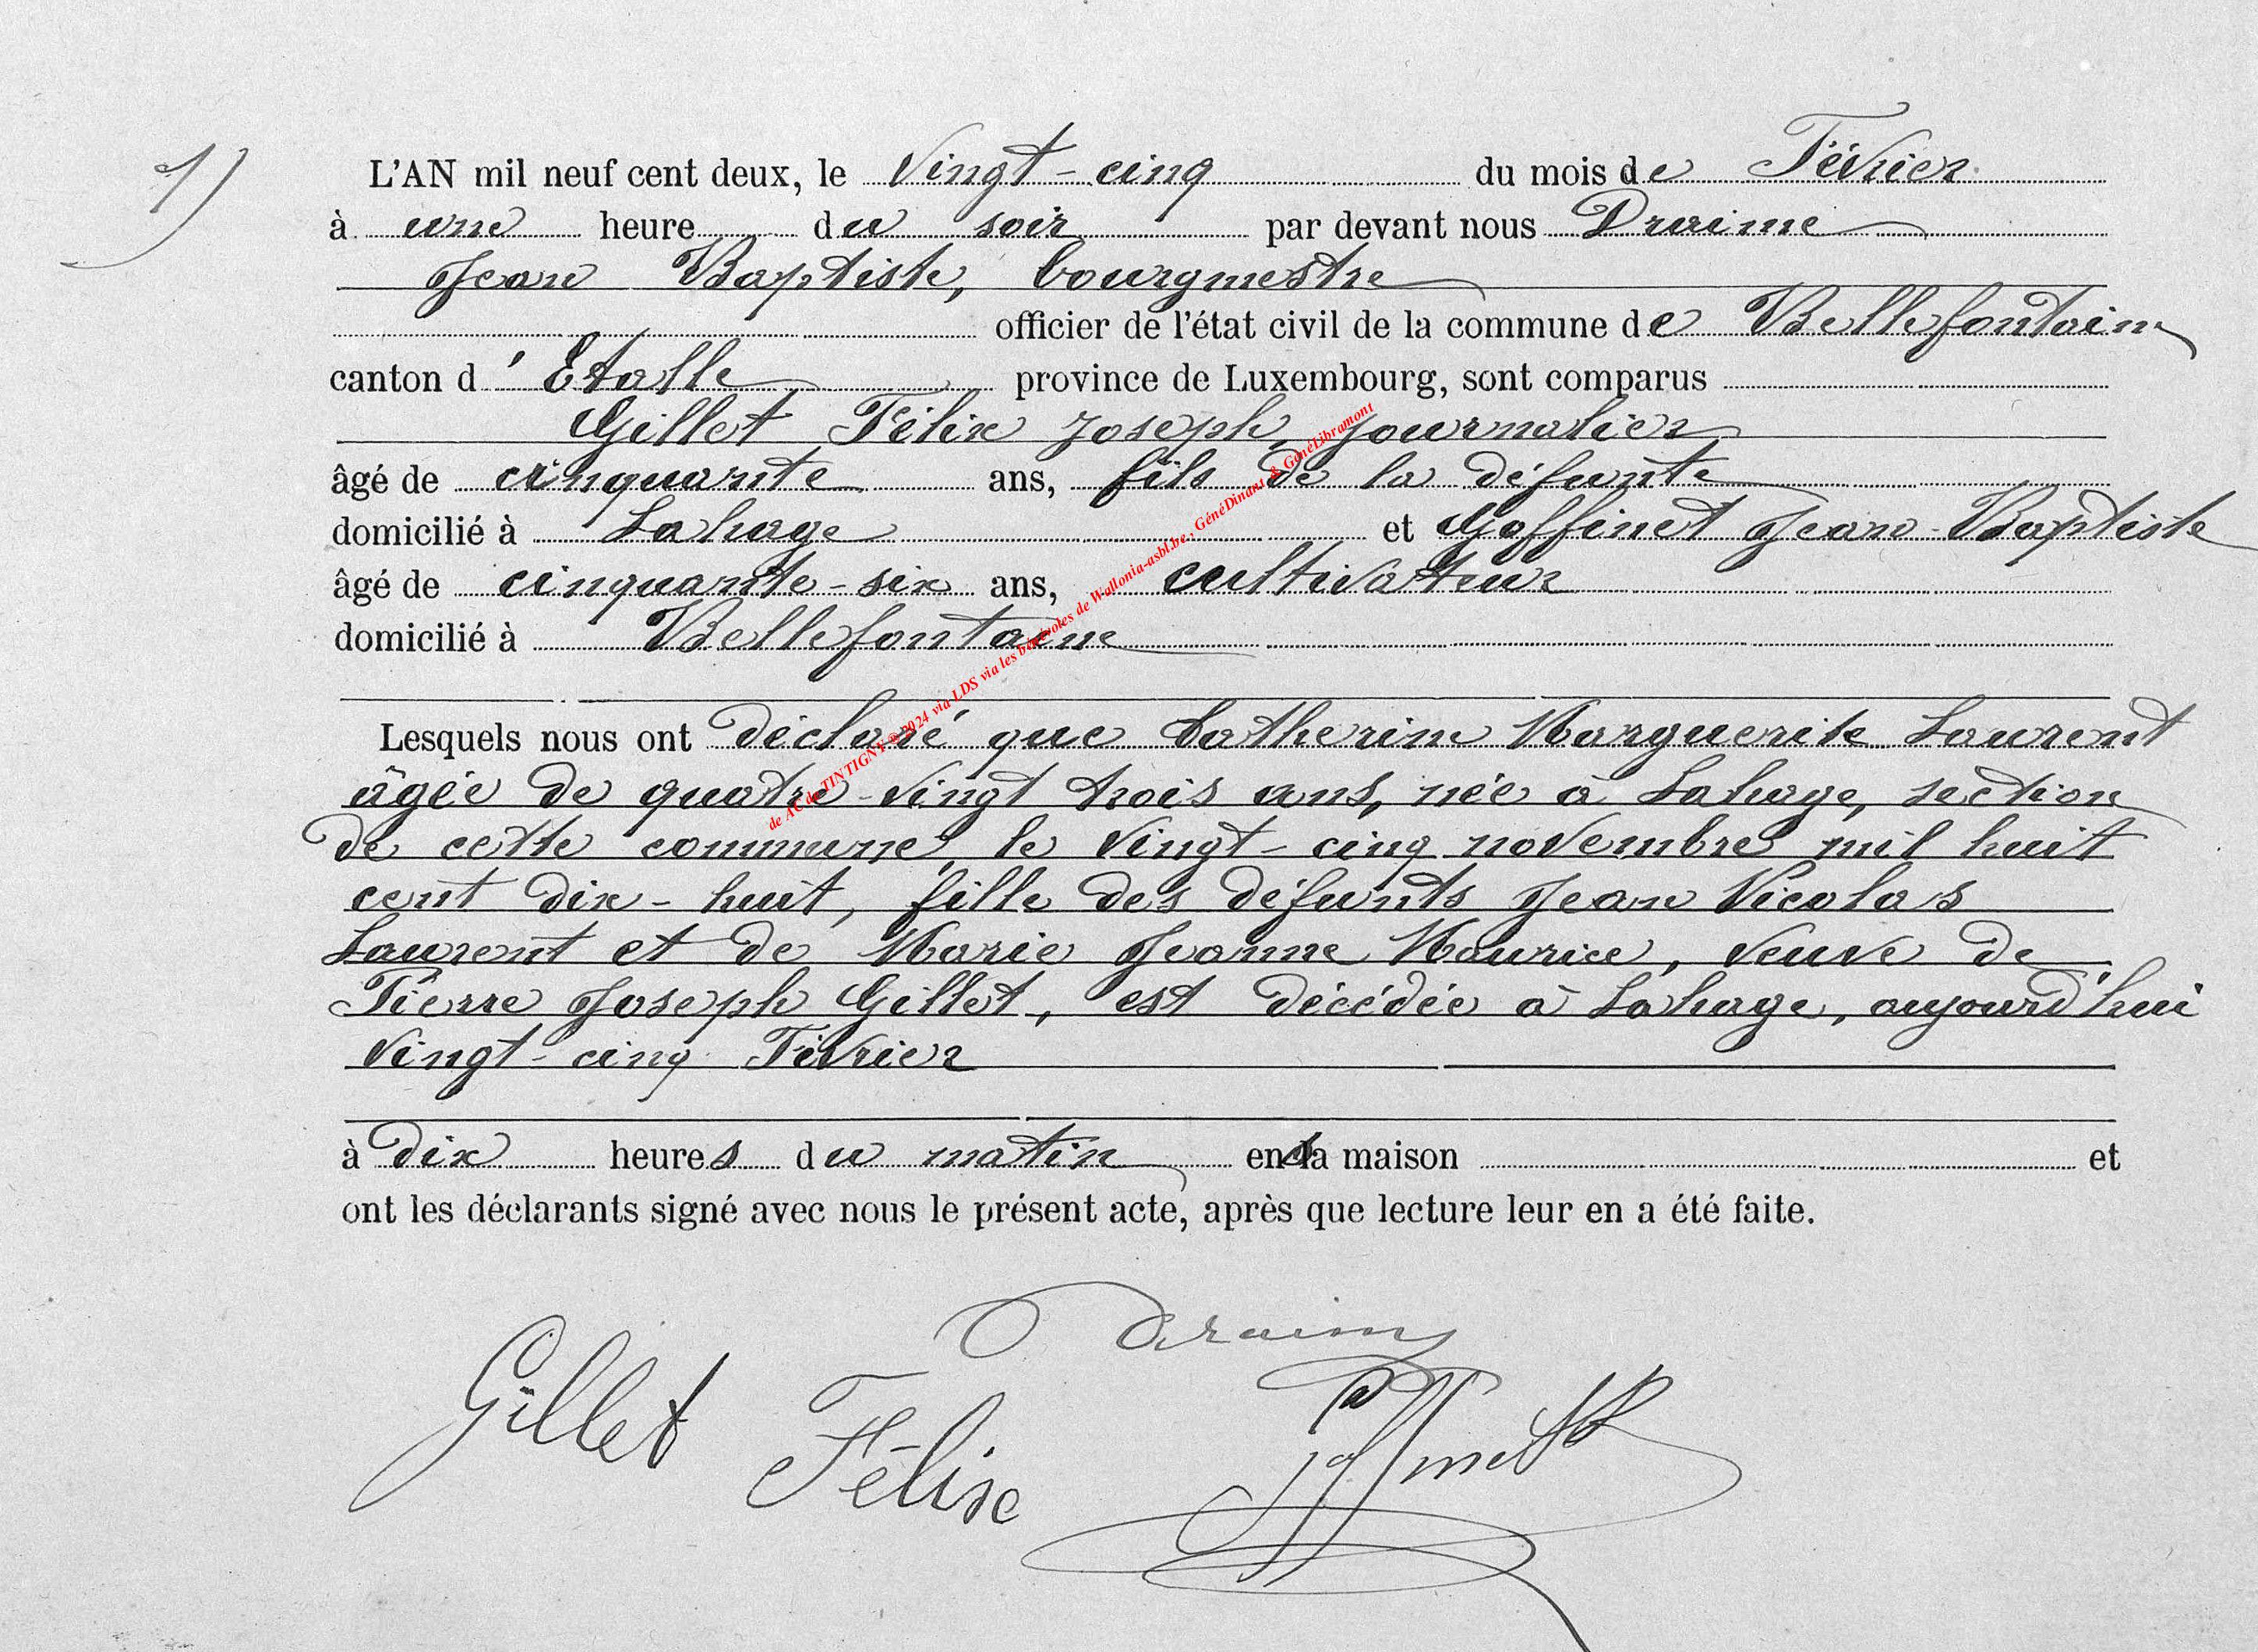 1)
L'AN mil neuf cent deux, le Vingt-cinq du mois de Février
à une heure du soir par devant nous Draime
Jean Baptiste, bourgmestre
officier de l'état civil de la commune de Bellefontaine
canton d'Etalle province de Luxembourg, sont comparus
Gillet Félix Joseph, journalier
âgé de cinquante ans, fils de la défunte
domicilié à Lahage et Goffinet Jean-Baptiste
âgé de cinquante-six ans, cultivateur
domicilié à Bellefontaine
Lesquels nous ont déclaré que Catherine Marguerite Laurent
âgée de quatre-vingt trois ans, née à Lahage, section
de cette commune, le vingt-cinq novembre mil huit
cent dix-huit, fille des défunts Jean Nicolas
Laurent et de Marie Jeanne Maurice, veuve de
Pierre Joseph Gillet, est décédée à Lahage, aujourd'hui
vingt-cinq Février
à dix heures du matin en sa maison et
ont les déclarants signé avec nous le présent acte, après que lecture leur en a été faite.
Draime
Gillet Félix Goffinet JB
de AC de TINTIGNY ©2024 via LDS via les bénévoles de Wallonia-asbl.be, GénéDinant & GénéLibramont